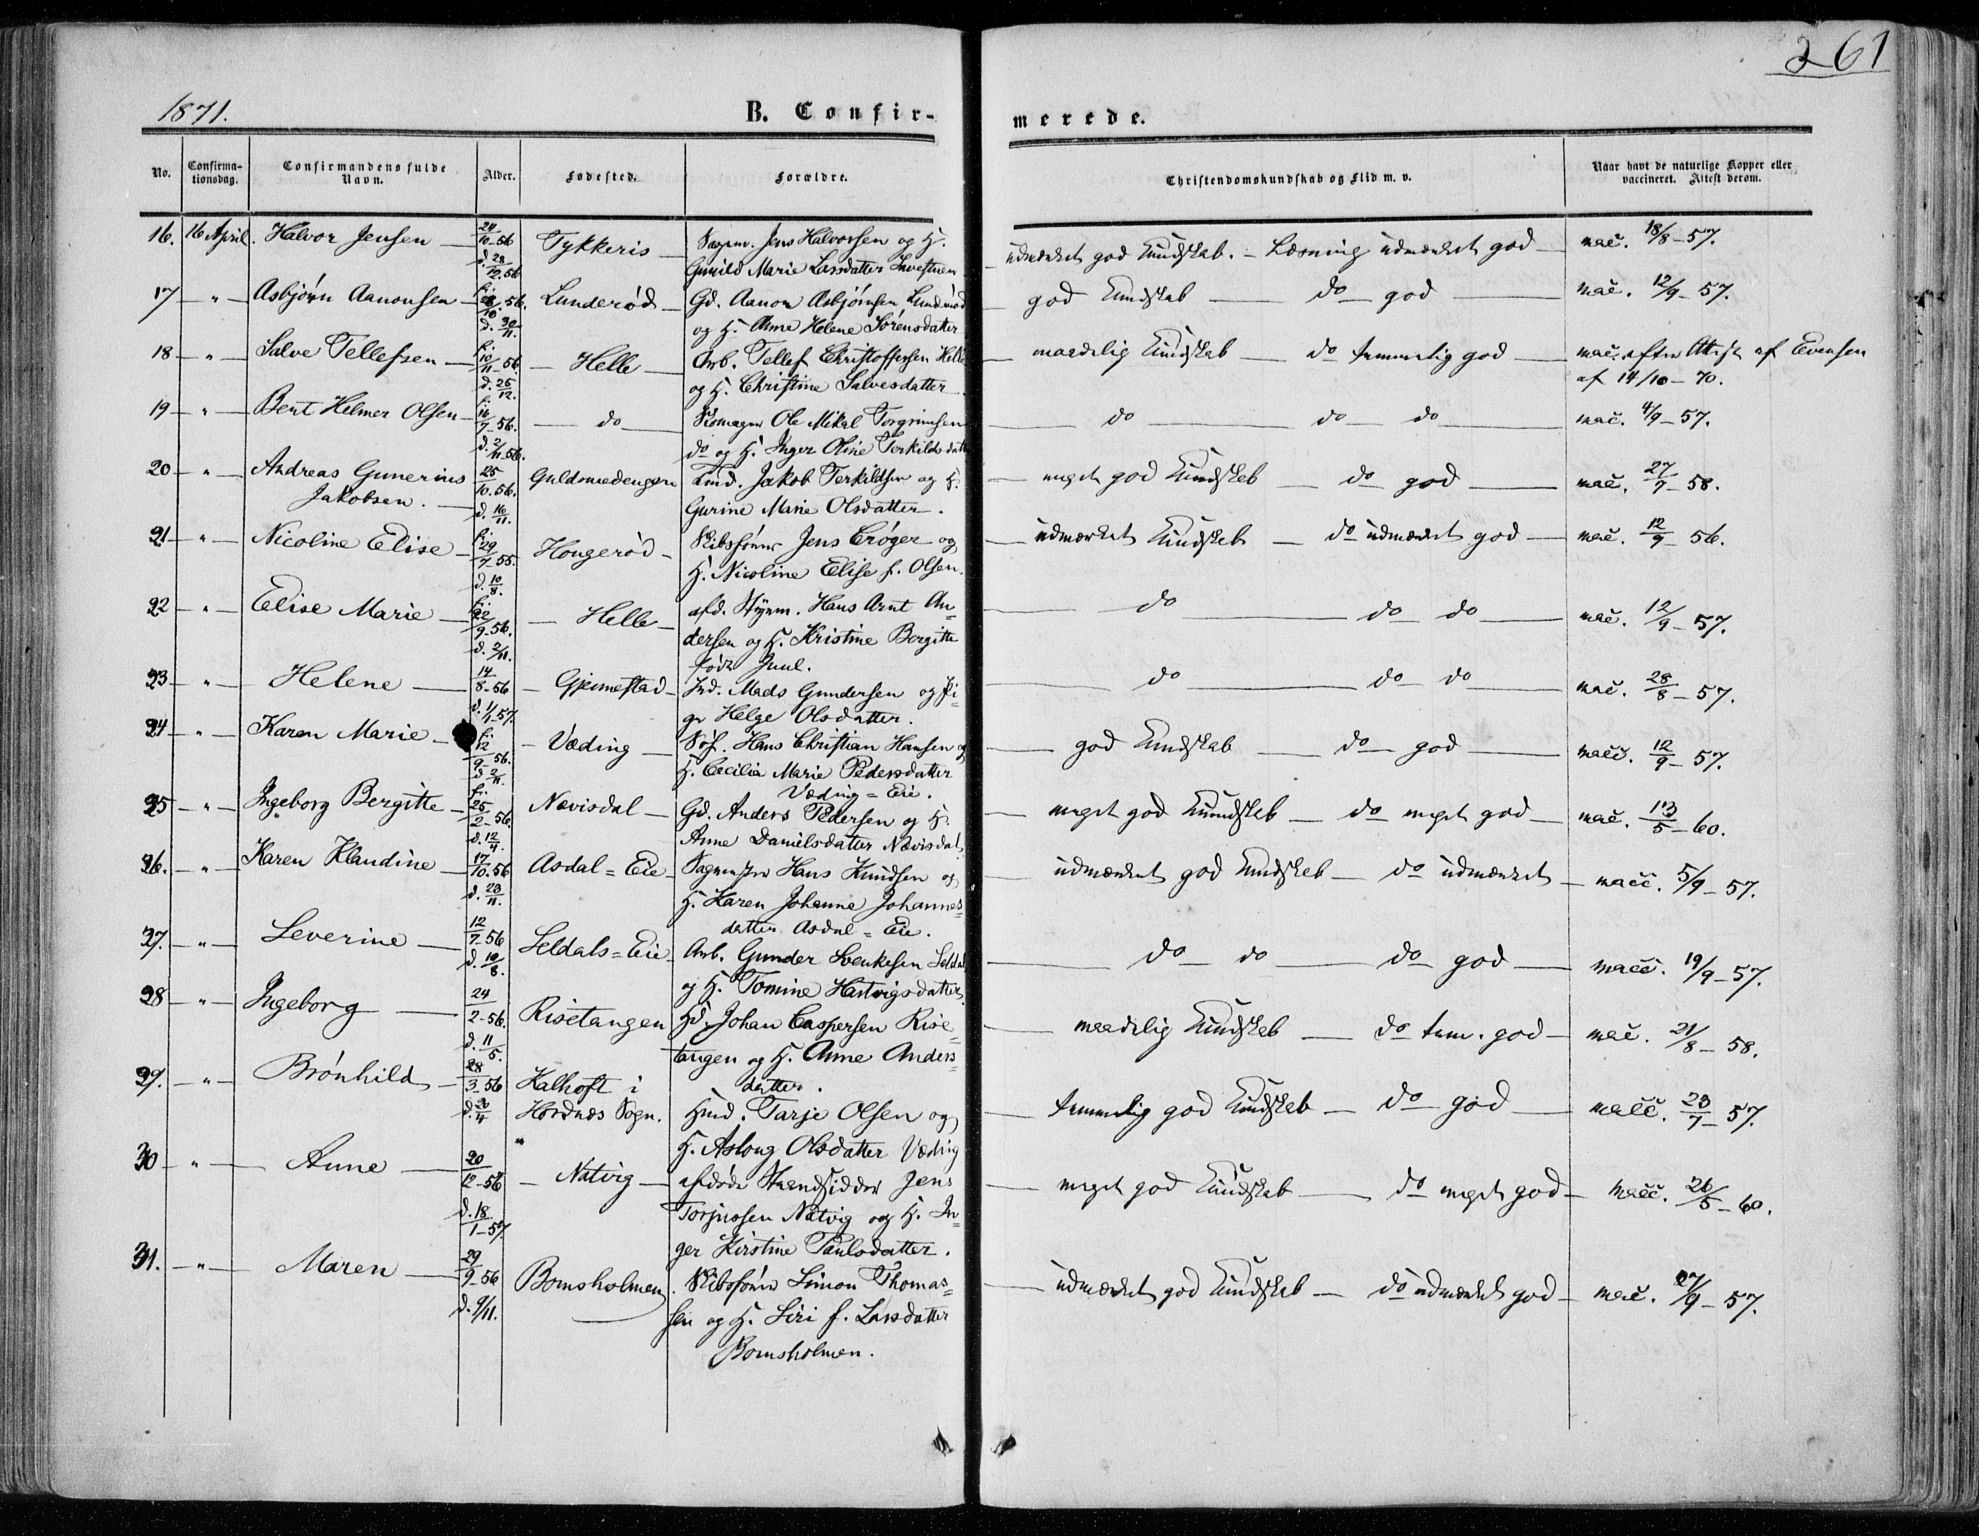 261
1871.
B. Confir-
merede.
No.
Confirma-
tionsdag.
Confirmandens fulde
Navn.
Alder.
Fødested.
Forældre.
Christendomskundskab og Flid m. v.
Naar havt de naturlige Kopper eller
vaccineret. Attest derom.
16. 16 April. Halvor Jensen 24/10-56 Tykkeris Jens Halvorsen og H. udmærket god Kundskab. - Læsning udmærket god vac. 18/8-57.
d. 28/12.56 Gunild Marie Larsdatter
17 " Asbjørn Aanonsen 56. Lunderød Gd. Aanon Asbjørnsen Lunderød god Kundskab do god vac. 12/9-57.
d. 30/11. og H. Anne Helene Sørensdatter
18 " Salve Tellefsen 10/11-56. Helle Arb. Tellef Christoffersen Helle maadelig Kundskab do temmelig god vac. efter Attest af Evensen
d. 26/12. og H. Christine Salvesdatter af 14/10-70.
19 " Bent Helmer Olsen 16/7-56. do Skomager Ole Mikal Torgrimsen do do do vac. 4/9-57.
d. 2/11.56. do og H. Inger Oline Terkildsdatter
20 " Andreas Gunerius 25/10.56. Guldsmedengen Jakob Terkildsen og H. meget god Kundskab do god vac. 27/7-58.
Jakobsen. d. 16/11. Gurine Marie Olsdatter.
21 " Nicoline Elise 29/7-55. Hougerød Skibsfører Jens Crøger og udmærket Kundskab do udmærket god vac. 12/9-56.
d. 10/8. H. Nicoline Elise f. Olsen.
22 " Elise Marie 22/9-56. Helle afd. Styrm. Hans Arnt An- do do do vac. 12/9-57.
d. 2/11. dersen og H. Kristine Bergitte
født Juul.
23 " Helene 14/8-56 Gjemestad Ind. Mads Gundersen og Pi- do do do vac. 28/8-57.
d. 1/1-57. ge Helge Olsdatter.
24 " Karen Marie 12/9-56. Væding Søf. Hans Christian Hansen og god Kundskab do god vacc. 12/9-57.
d. 2/11. H. Cecilia Marie Pedersdatter
Væding=Eie.
25 " Ingeborg Bergitte 25/2-56. Nævisdal Gd. Anders Pedersen og H. meget god Kundskab do meget god vac. 13/5-60.
d. 12/4. Anne Danielsdatter Nævisdal
26. " Karen Klaudine 17/10.56 Asdal=Eie Hans Knudsen og udmærket god Kundskab do udmærket vacc. 5/9-57.
d. 23/11. H. Karen Johanne Johannes-
datter Asdal=Eie.
27. " Leverine 12/7-56 Seldals=Eie Arb. Gunder Svenkesen Seldal do do do god vacc. 19/9-57.
d. 10/8. og H. Tomine Hartvigsdatter
28 " Ingeborg 24/2-56. Risetangen Gd. Johan Caspersen Rise- maadelig Kundskab do tem. god vac. 21/8-58.
d. 11/5. tangen og H. Anne Anders-
datter.
29. " Brønhild 28/3-56 Kalhoft i Tarje Olsen og temmelig god Kundskab do god vacc. 23/7-57.
d. 20/4 Hordnæs Sogn. H. Asloug Olsdatter Væding
30 " Anne 20/12-56 Natvig afdøde Strandsidder Jens meget god Kundskab do meget god vacc. 26/5-60.
d. 18/1-57 Torjussen Natvig og H. In-
ger Kirstine Paulsdatter.
31. " Maren 29/9-56 Bomsholmen Skibsfører Simon Thomas- udmærket god Kundskab do udmærket god vac. 27/9-57.
d. 9/11. sen og H. Siri f. Larsdatter
Bomsholmen.